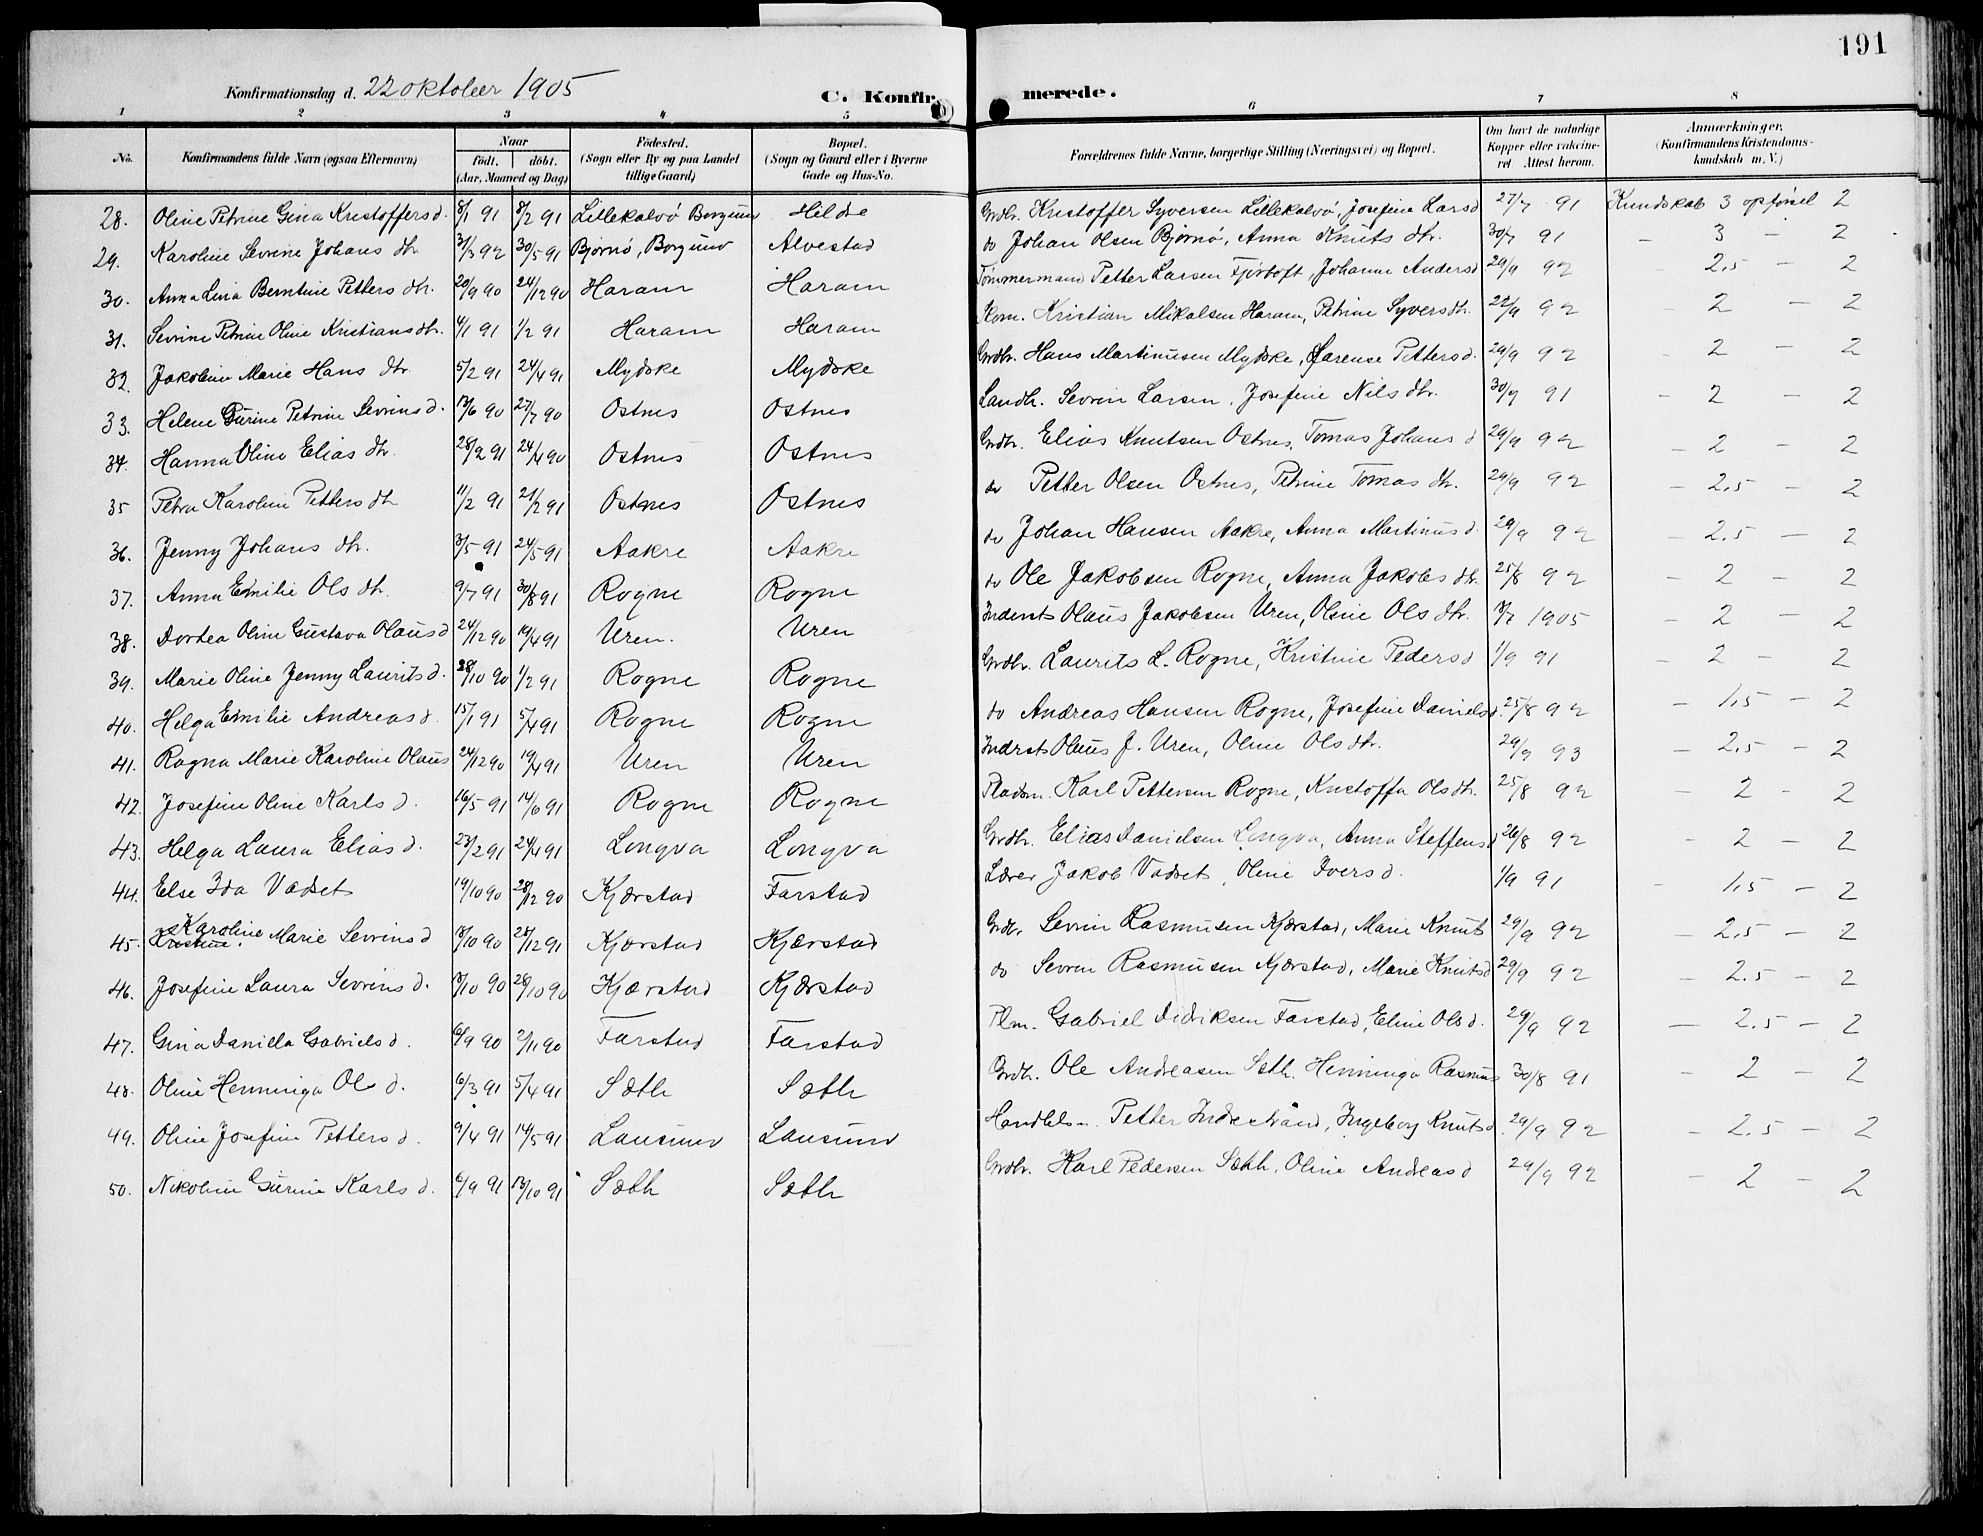 191
Konfirmationsdag d. 22 oktober 1905
C. Konfirmerede.
1 2 3 4 5 6 7 8
No. Konfirmandens fulde Navn (ogsaa Efternavn) Naar født. døbt. (Aar, Maaned og Dag) Fødested. (Sogn eller By og paa Landet tillige Gaard) Bopæl. (Sogn og Gaard eller i Byerne Gade og Hus-No. Forældrenes fulde Navne, borgerlige Stilling (Næringsvei) og Bopæl. Om havt de naturlige Kopper eller vaksineret. Attest herom. Anmærkninger, (Konfirmandens Kristendomskundskab m. V.)
28. Oline Petrine Gina Kristoffersd. 8/1 91 8/2 91 Lillekalvø Borgund Hildre Grdbr. Kristoffer Syversen Lillekalvø, Josefine Larsd 27/7 91 Kundskab 3 opførsel 2
29. Karoline Sevrine Johans dtr. 31/3 92 30/5 91 Bjørnø, Borgund Alvestad do Johan Olsen Bjørnø, Anna Knuts dtr. 30/7 91 - 3 - 2
30. Anna Lina Berntine Petters dtr. 20/9 90 24/12 90 Haram Haram Tømmermand Petter Larsen Fjørtoft, Johanne Andersd 29/9 92 2,5 - 2
31. Sevrine Petrine Oline Kristians dtr. 4/1 91 1/2 91 Haram Haram Kom. Kristian Mikalsen Haram, Petrine Syversdtr. 22/9 92 - 2 - 2
32. Jakobine Marie Hans dtr 5/2 91 24/4 91 Mydske Mydske Grdbr. Hans Martinusen Mydske, Larense Pettersd. 29/9 92 - 2 - 2
33. Helene Gurine Petrine Sevrinsd. 13/6 90 27/7 90 Ostnes Ostnes Landh. Sevrin Larsen, Josefine Nilsdtr. 30/9 91 - 2 - 2
34. Hanna Oline Elias dtr. 28/2 91 24/4 90 Ostnes Ostnes Grdbr. Elias Knutsen Ostnes, Tomas Johans d 29/9 92 - 2 - 2
35 Petra Karoline Petters dtr 11/2 91 21/2 91 Ostnes Ostnes do Petter Olsen Ostnes, Petrine Tomas dtr. 29/9 92 - 2,5 - 2
36. Jenny Johans dtr. 3/5 91 24/5 91 Aakre Aakre do Johan Hansen Aakre, Anna Martinusd. 29/9 92 - 2,5 - 2
37. Anna Emilie Ols dtr. 9/7 91 30/8 91 Rogne Rogne do Ole Jakobsen Rogne, Anna Jakobs dtr. 25/8 92 - 2 - 2
38. Dortea Oline Gustava Olausd 24/12 90 19/4 91 Uren. Uren Inderst Olaus Jakobsen Uren, Oline Ols dtr. 3/7 1905 - 2 - 2
39. Marie Oline Jenny Lauritsd. 28/10 90 1/2 91 Rogne Rogne Grdbr. Laurits L. Rogne, Kristine Pedersd 1/9 91 - 2 - 2
40. Helga Emilie Andreasd. 15/1 91 5/4 91 Rogne Rogne do Andreas Hansen Rogne, Josefine Danielsd. 25/8 92 - 1,5 - 2
41. Ragna Marie Karoline Olaus 24/12 90 19/4 91 Uren Uren Indrst Olaus J. Uren, Oline Ols dtr. 29/9 93 - 2,5 - 2
42. Josefine Oline Karls d. 16/5 91 14/6 91 Rogne Rogne Pladsm. Karl Pettersen Rogne, Kristoffa Olsdtr. 25/8 92 - 2 - 2
43. Helga Laura Elias d. 23/2 91 24/4 91 Longva Longva Grdbr. Elias Danielsen Longva, Anna Steffensd 26/8 92 - 2 - 2
44. Else Ida Vadset 19/10 90 28/12 90 Kjærstad Farstad Lærer Jakob Vadset, Oline Ivers d. 1/9 91 - 1,5 - 2
45. Karoline Marie Sevrins d 8/10 90 28/12 91 Kjærstad Kjærstad Grdbr. Sevrin Rasmusen Kjærstad, Marie Knuts 29/9 92 - 2,5 - 2
46. Josefine Laura Sevrins d. 8/10 90 28/10 90 Kjærstad Kjærstad do Sevrin Rasmusen Kjærstad, Marie Knutsd 29/9 92 - 2.5 - 2
47. Gina Daniella Gabriels d. 6/9 90 2/11 90 Farstad Farstad Plm. Gabriel Didriksen Farstad, Eline Olsd. 29/9 92 - 2.5 - 2
48. Oline Henninga Ols d. 6/3 91 5/4 91 Sæth Sæth Grdbr. Ole Andreasen Sæth. Henninga Rasmus 30/8 91 - 2 - 2
49. Oline Josefine Petters d. 9/4 91 14/5 91 Lausund Lausund Handelsm. Petter Indrestrand, Ingeborg Knutsd. 29/9 92 - 2.5 - 2
50. Nikoline Gurine Karls d. 6/9 91 13/10 91 Sæth Sæth Grdbr. Karl Pedersen Sæth, Oline Andreas d 29/9 92 - 2 - 2